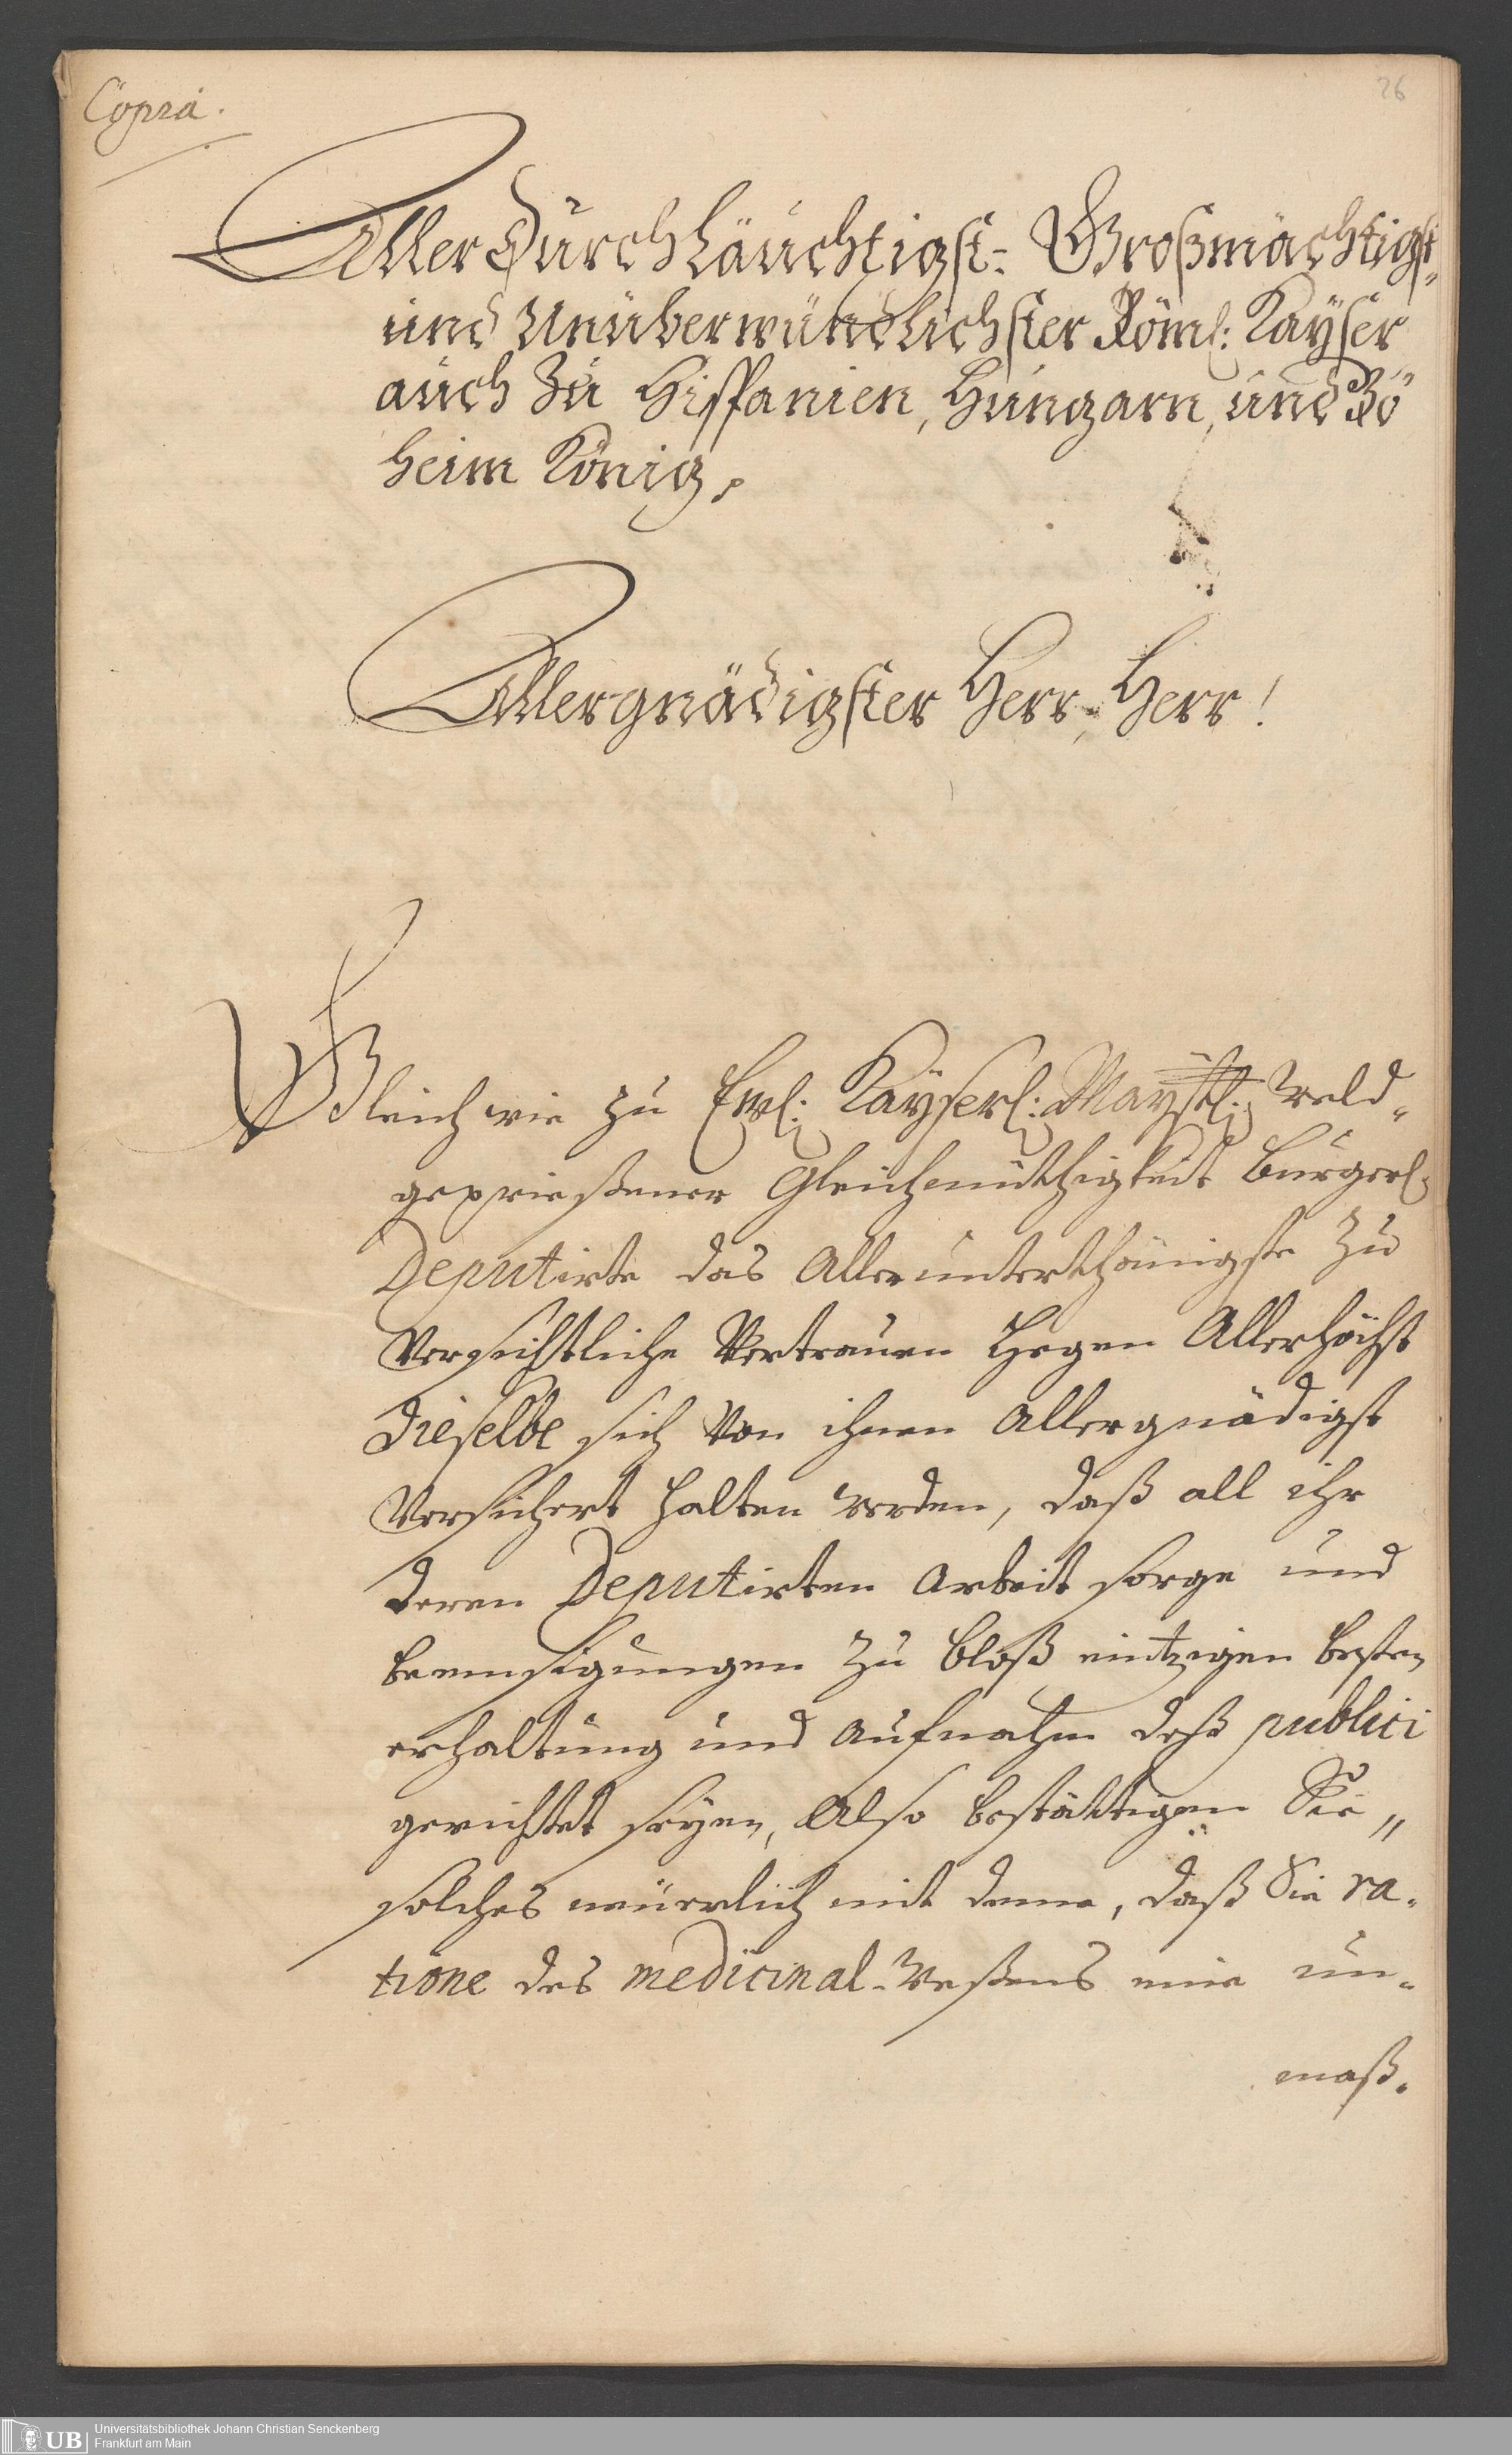 Copia.
26
AllerDurchläuchtigst- Großmächtigst,
und Unüberwündlichster Röml: Kayser
auch Zu Hispanien, Hungarn, und Bö
heim König,
Allergnädigster Herr, Herr!
Gleich wie zu Ewl: Kayserl: Maystl: Weld„
geprießener Gleichmüthigkeit Bürgerl:
Deputirte das Allerunterthänigste Zu
Versichtliche Vertrauen Hegen Allerhöchst
Dieselbe sich Von ihnen Allergnädigst
Versichert halten werden, daß all ihr
deren Deputirten Arbeit sorge und
beemsigungen Zu bloß eintzigen besten
erhaltung und Aufnahm deß publici
gerichtet seyen, Also bestättigen Sie„
solches neüerlich mit deme, daß Sie ra-
tione des medicinal-Weßens eine un-
maß.
UB
Universitätsbibliothek Johann Christian Senckenberg
Frankfurt am Main